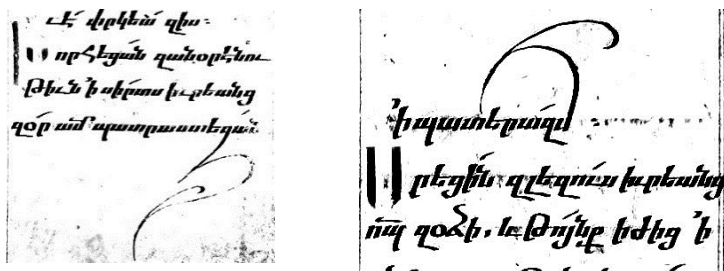 ւէ փրկեա՛ զիս։
Խորհեցան զանօրէնու
թիւն ՚ի սիրտս իւրեանց
զօր ամ պատրաստեցան
՚ի պատերազմ
Սրեցին զլեզուս իւրեանց
որպ զօձի, և թոյնք իժից ՚ի